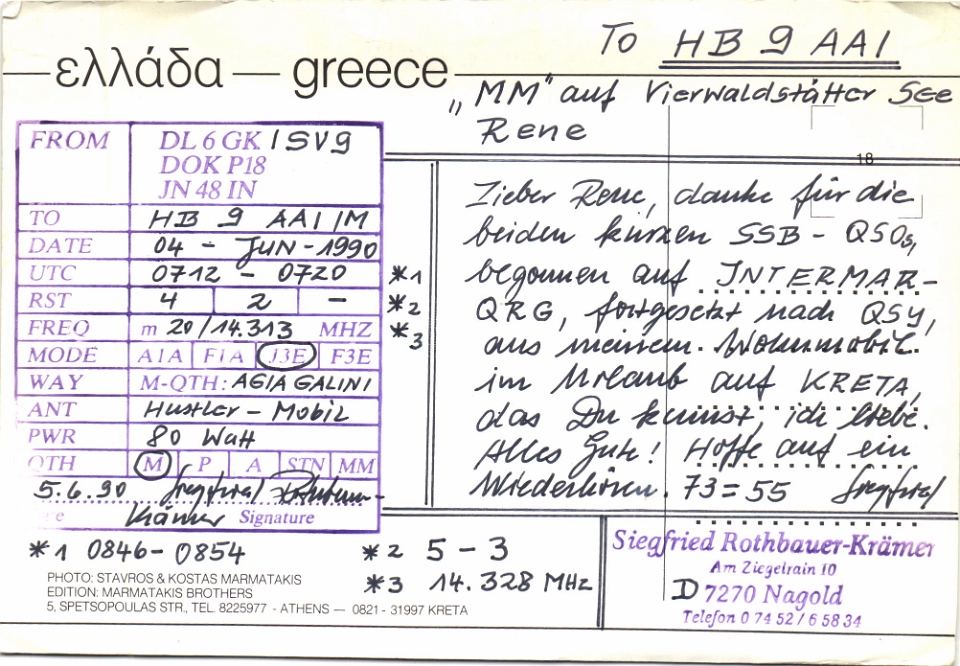 To HB 9 AAI
ελλάδα — greece
„MM" auf Vierwaldstätter See
Rene
18
FROM DL 6 GK / SV9
DOK P18
JN 48 IN
TO HB 9 AAI /M
DATE 04 - JUN - 1990
UTC 0712 - 0720 *1
RST 4 2 - *2
FREQ m 20/14.313 MHZ *3
MODE A1A F1A J3E F3E
WAY M-QTH: AGIA GALINI
ANT Hustler - Mobil
PWR 80 Watt
QTH M P A STN MM
5.6.90 Siegfried
Krämer Signature
Lieber Rene, danke für die
beiden kurzen SSB - QSOs,
begonnen auf INTERMAR-
QRG, fortgesetzt nach QSY,
aus meinem Wohnmobil
im Urlaub auf KRETA,
das Du kennst, ich liebe.
Alles Gute! Hoffe auf ein
Wiederhören. 73 = 55 Siegfried
*1 0846 - 0854
*2 5 - 3
*3 14.328 MHz
PHOTO: STAVROS & KOSTAS MARMATAKIS
EDITION: MARMATAKIS BROTHERS
5, SPETSOPOULAS STR., TEL. 8225977 - ATHENS — 0821 - 31997 KRETA
Siegfried Rothbauer-Krämer
Am Ziegelrain 10
D 7270 Nagold
Telefon 0 74 52 / 6 58 34